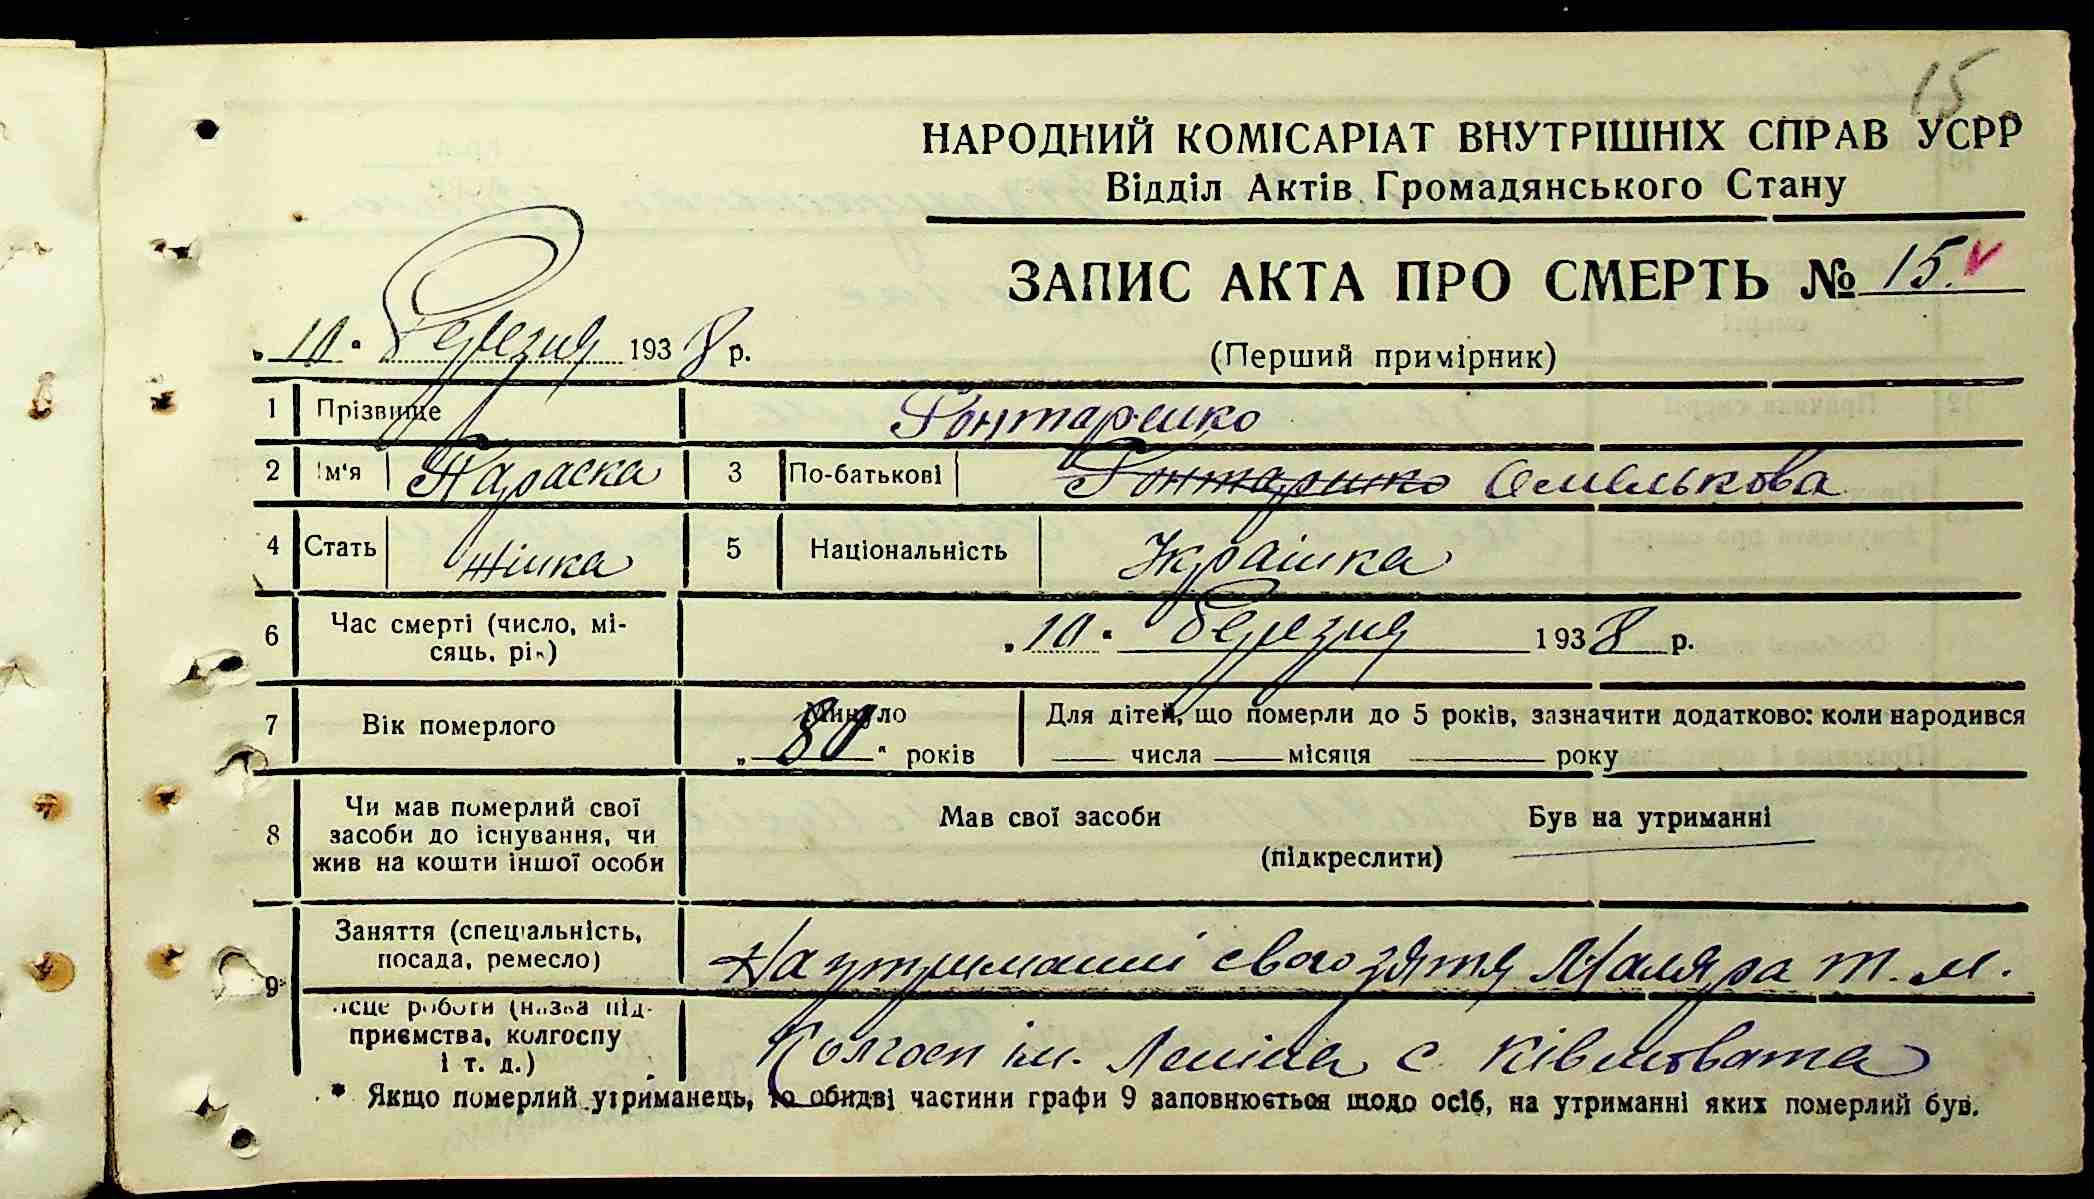 15
НАРОДНИЙ КОМІСАРІАТ ВНУТРІШНІХ СПРАВ УСРР
Відділ Актів Громадянського Стану
ЗАПИС АКТА ПРО СМЕРТЬ № 15.
„10" Березня 1938 р.
(Перший примірник)
1 Прізвище Гонтаренко
2 Ім'я Параска 3 По-батькові Гонтаренко Омелькова
4 Стать Жінка 5 Національність Українка
6 Час смерті (число, мі-
сяць, рік) „10" Березня 1938 р.
7 Вік померлого Минуло „80" років Для дітей, що померли до 5 років, зазначити додатково: коли народився
числа місяця року
8 Чи мав померлий свої
засоби до існування, чи
жив на кошти іншої особи
Мав свої засоби Був на утриманні
(підкреслити)
9 Заняття (спеціальність,
посада, ремесло) На утриманні свого зятя Маляра Т. М.
Місце роботи (назва під-
приємства, колгоспу
і т. д.) Колгосп ім. Леніна с. Ківшовата
* Якщо померлий утриманець, то обидві частини графи 9 заповнюється щодо осіб, на утриманні яких померлий був.